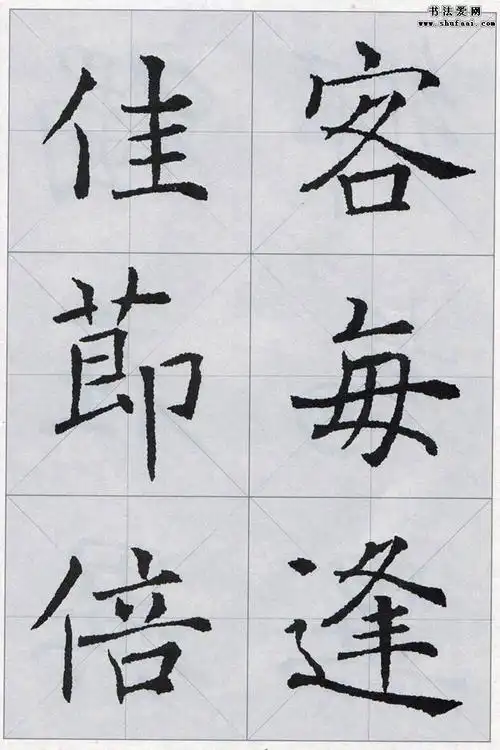 书法爱网
www.shufaai.com
客每逢
佳節倍